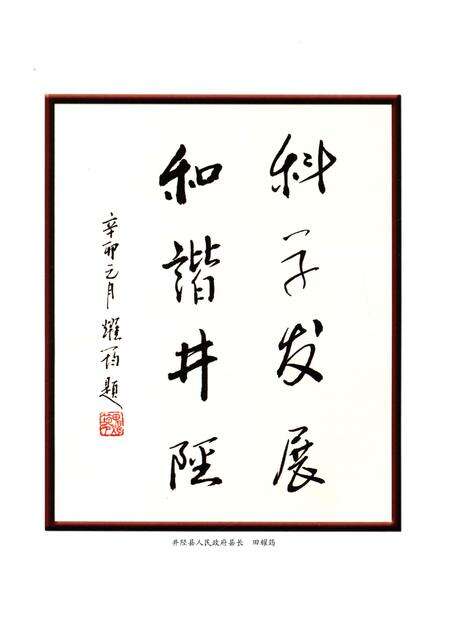 科学发展
和諧井陘
辛卯元月 耀筠題
井陉县人民政府县长 田耀筠